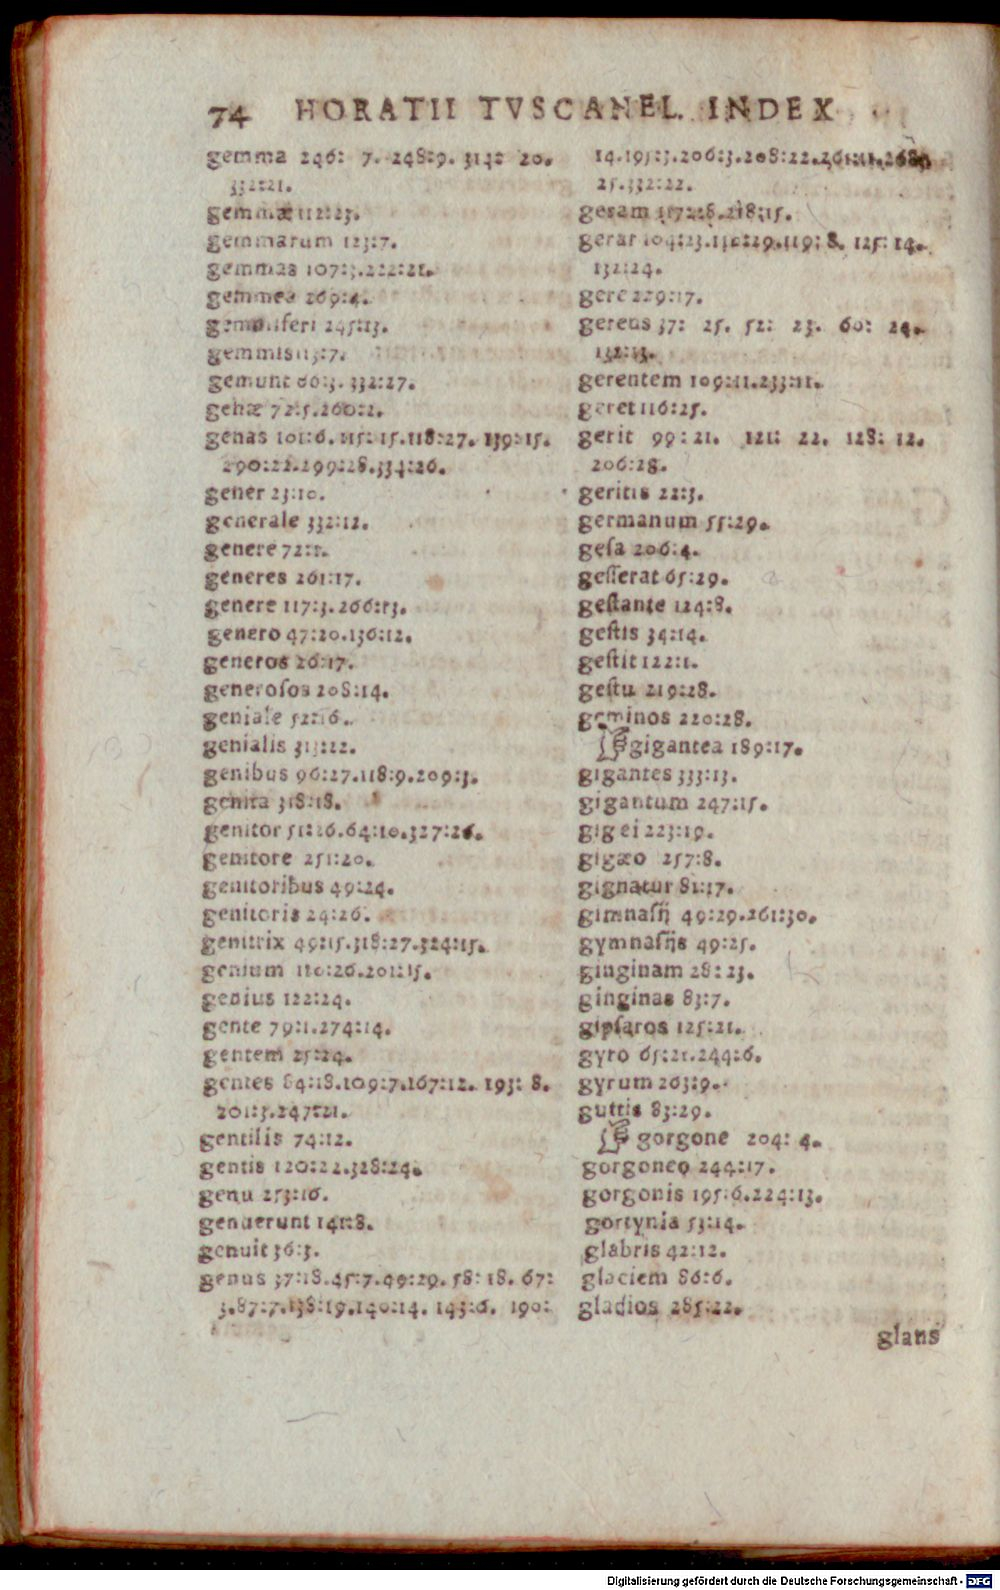 74 HORATII TVSCANEL. INDEX
gemma 246: 7. 248:9. 314: 20.
332:21.
gemmæ 112:23.
gemmarum 123:7.
gemmas 107:3.222:21.
gemmea 269:4.
gemmiferi 245:13.
gemmis 113:7.
gemunt 60:3. 332:27.
genæ 72:5.260:2.
genas 101:6. 115: 15.118:27. 139:15.
290:22.299:28.334:26.
gener 23:10.
generale 332:12.
genere 72:1.
generes 261:17.
genere 117:3.266:13.
genero 47:20.136:12.
generos 26:17.
generoſos 208:14.
geniale 52:16.
genialis 313:22.
genibus 96:27.118:9.209:3.
genita 318:18.
genitor 51:26.64:10.327:26.
genitore 251:20.
genitoribus 49:24.
genitoris 24:26.
genitrix 49:15.318:27.324:15.
genium 110:26.201:15.
genius 122:24.
gente 79:1.274:14.
gentem 25:24.
gentes 84:18.109:7.167:12. 193: 8.
201:3.247:21.
gentilis 74:12.
gentis 120:22.328:24.
genu 253:16.
genuerunt 141:8.
genuit 36:3.
genus 37:18.45:7.49:29. 58: 18. 67:
3.87:7.138:19.140:14. 143:6. 190:
14.195:3.206:3.208:22.261:11.268:
25.332:22.
geram 117:28.218:15.
gerar 104:23.112:29.119: 8. 125: 14.
132:24.
gere 229:17.
gerens 37: 25. 52: 23. 60: 24.
132:13.
gerentem 109:11.233:11.
geret 116:25.
gerit 99: 21. 121: 22. 128: 12.
206:28.
geritis 22:3.
germanum 55:29.
geſa 206:4.
geſſerat 65:29.
geſtante 124:8.
geſtis 34:14.
geſtit 122:1.
geſtu 219:28.
geminos 220:28.
☞gigantea 189:17.
gigantes 333:13.
gigantum 247:15.
gigei 223:19.
gigæo 257:8.
gignatur 81:17.
gimnaſij 49:29.261:30.
gymnaſijs 49:25.
ginginam 28:23.
ginginas 83:7.
gipſaros 125:21.
gyro 65:21.244:6.
gyrum 263:9.
guttis 83:29.
☞ gorgone 204: 4.
gorgoneo 244:17.
gorgonis 195:6.224:13.
gortynia 53:14.
glabris 42:12.
glaciem 86:6.
gladios 285:22.
glans
Digitalisierung gefördert durch die Deutsche Forschungsgemeinschaft - DFG